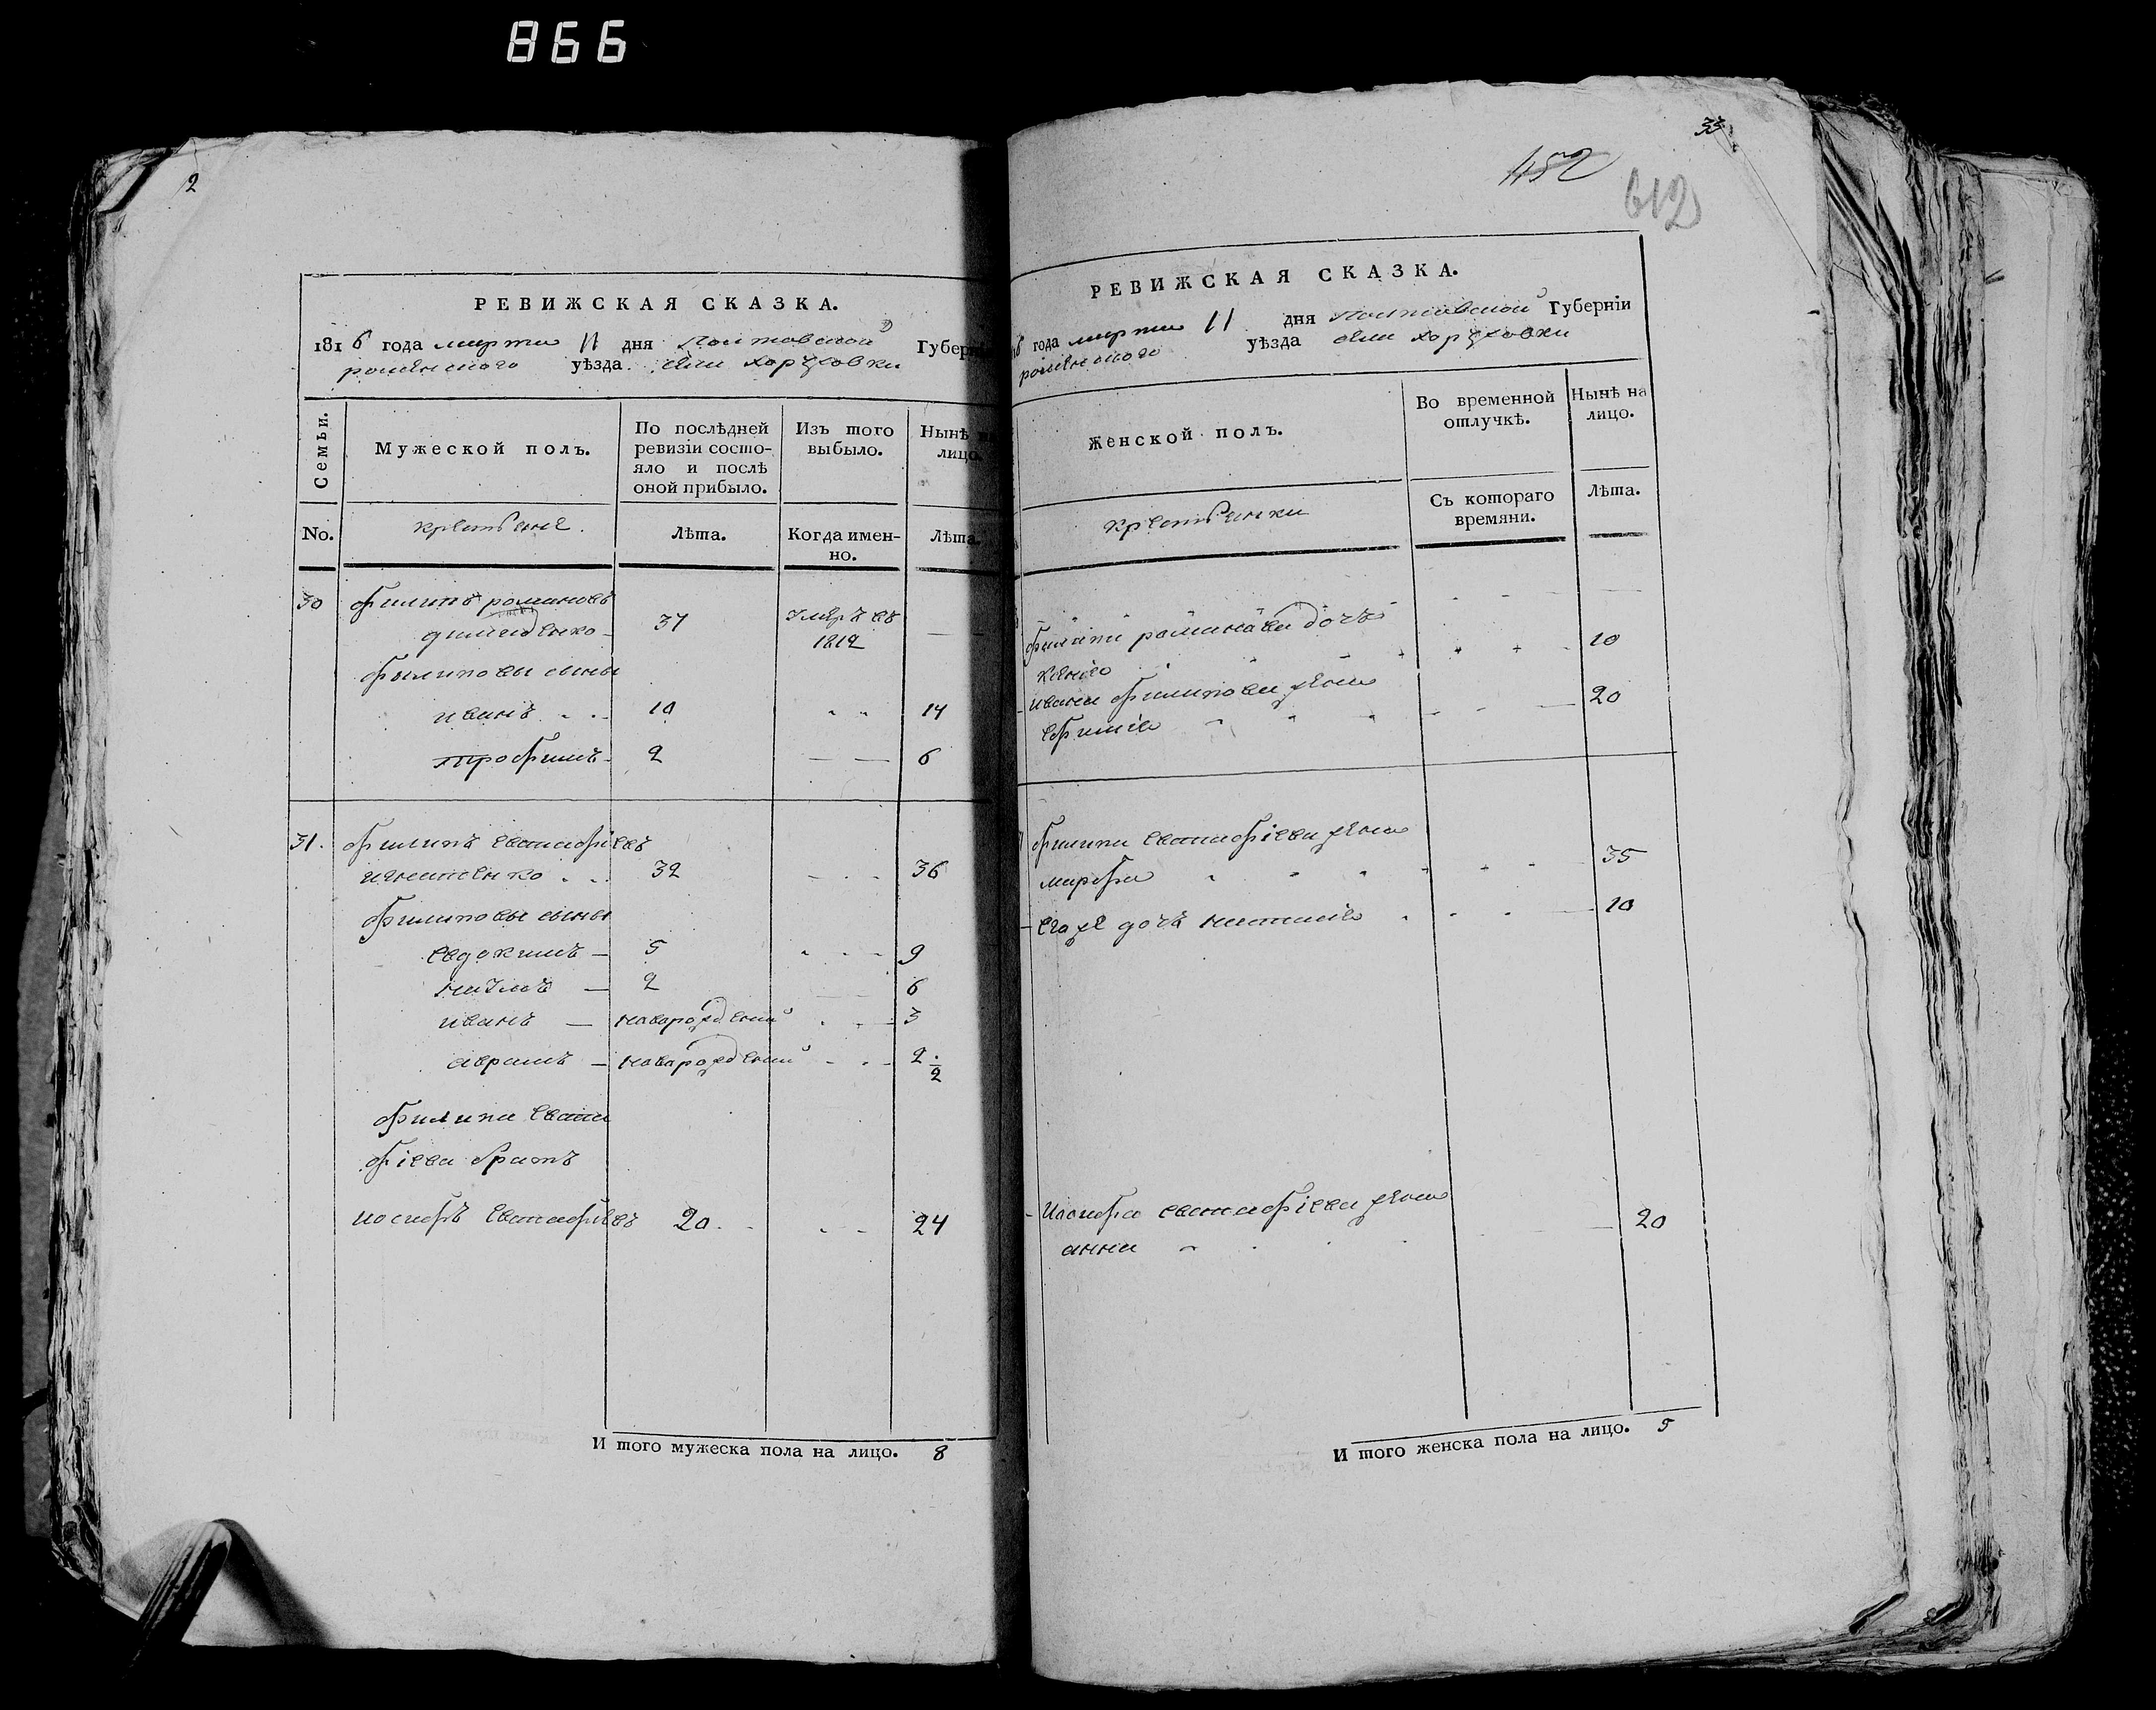 866
2
РЕВИЖСКАЯ СКАЗКА.
1816 года марта 11 дня Полтавской Губерн
роменского уѣзда села хоружовки
Семьи. Мужеской полъ. По послѣдней ревизіи состояло и послѣ оной прибыло. Изъ того выбыло. Нынѣ на лицо.
No. крестьяне. Лѣта. Когда именно. Лѣта.
30 филипъ романовъ
37 Умеръ въ 1812
филиповы сыны
иванъ 10 14
трофимъ 2 6
31. филипъ евстафіевъ
игнатенко 32 36
филиповы сыны
евдокимъ 5 9
наумъ 2 6
иванъ новарожденній 3
аврамъ новарожденній 2 1/2
филипа евста
фіева братъ
иосифъ евстафіевъ 20 24
И того мужеска пола на лицо. 8
33
452
612
РЕВИЖСКАЯ СКАЗКА.
6 года марта 11 дня полтавской Губерніи
роменского уѣзда села хоружовки
Женской полъ. Во временной отлучкѣ. Нынѣ на лицо.
крестьянки Съ котораго времяни. Лѣта.
филипа романова дочъ
ксенія 10
ивана филипова жена
ефимія 20
филипа евстафіева жена
марфа 35
его же дочъ настасія 10
Иосифа евстафіева жена
анна 20
И того женска пола на лицо. 5